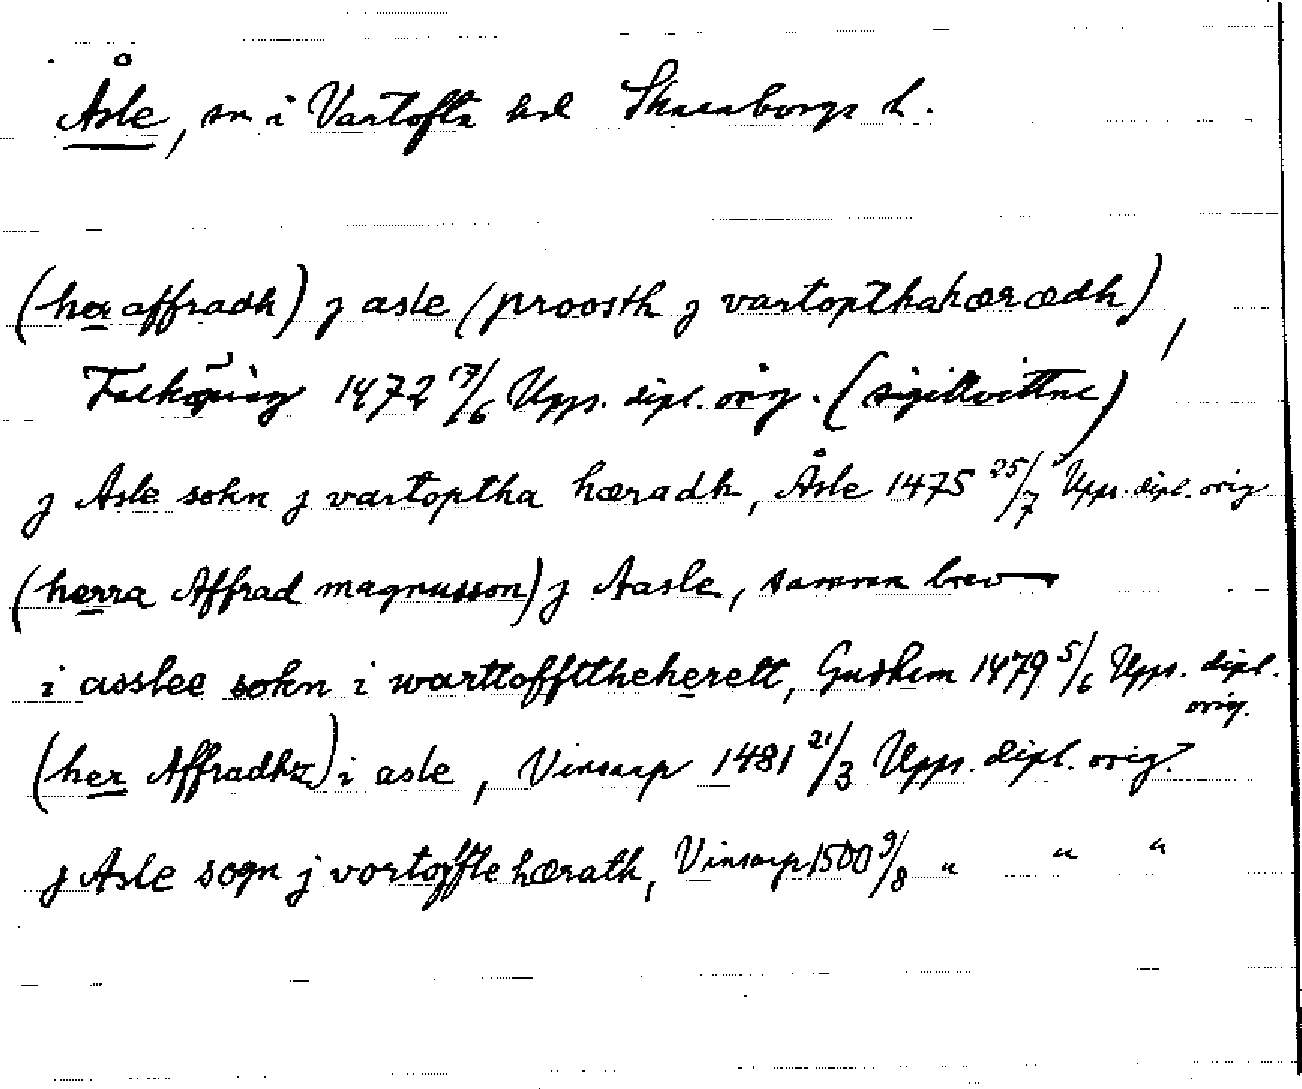 Åsle, sn i Vartofta hd Skaraborgs l.
(her affradh) j asle (proosth j vartopthahæradh),
Falköping 1472 17/6 Upps. dipl. orig. (sigillvittne)
j Asle sokn j vartoptha hæradh, Åsle 1475 25/7 Upps. dipl. orig
(herra Affrad magnusson) j Aasle, samma brev
i asslee sokn i warttoffttheherett, Gudhem 1479 5/6 Upps. dipl.
orig.
(her Affradh) i asle, Vinsarp 1481 21/3 Upps. dipl. orig.
j Asle sogn j vortoffte hærath, Vinsarp 1500 9/8 " " "